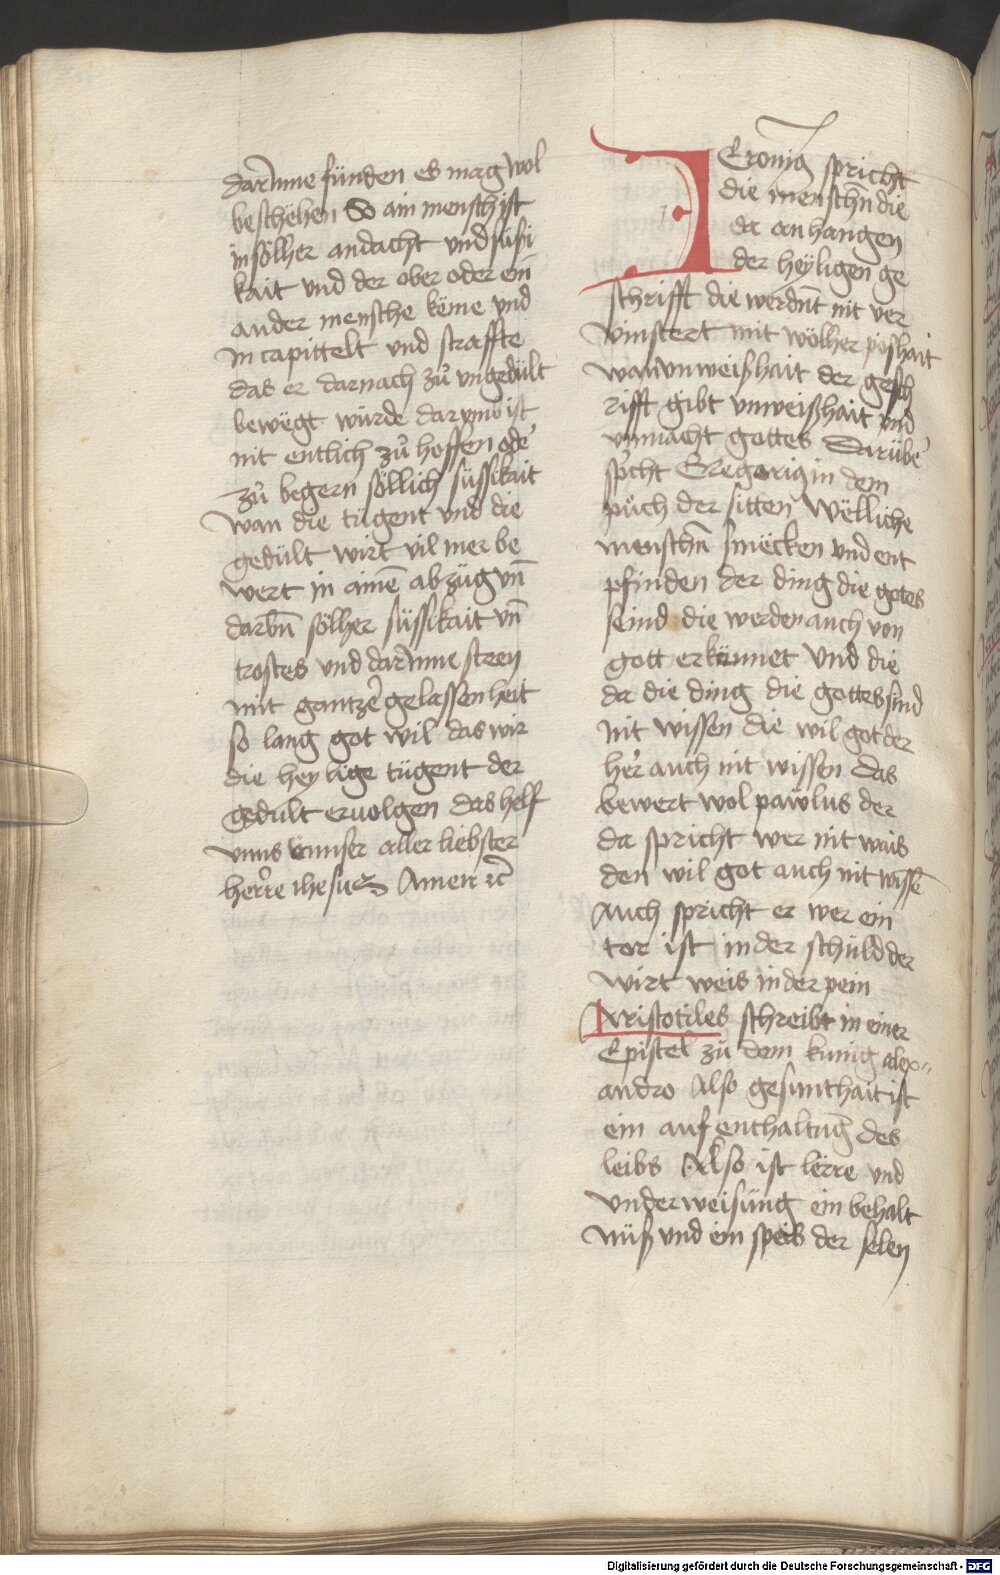 darinne fúnden es mag wol
beschëhen So ain mensch ist
in sölher andacht vnd süsi
kait vnd der ober oder ein
ander mensche këme vnd
in capittelt vnd straffte
das er darnach zů vngedült
bewëgt wúrde darvmb ist
nit entlich zů hoffen oder
zů begern söllich süssikait
wan die túgent vnd die
gedúlt wirt vil mer be
wert in ainē abzúg vn̄
darbn̄ sölher süssikait vn̄
trostes vnd darinne steen
mit gantzer gelassenheit
so lang got wil das wir
die heylige túgent der
gedult eruolgen das helf
vnns vnnser aller liebster
herre ihesus Amen ꝛc̄
IEronimꝰ spricht
die menschn̄ die
da anhangen
der heyligen ge
schrifft die werdnt nit ver
vinstert mit wölher poshait
wan vnweißhait der gesch
rifft gibt vnweißhait vnd
vnmacht gottes Darüber
spricht Gregoriꝰ in dem
půch der sitten Wëlliche
menschn̄ smëcken vnd ent
pfinden der ding die gotes
seind die werden auch von
gott erkënnet Vnd die
da die ding die gottes sind
nit wissen die wil got der
her auch nit wissen das
bewert wol pawlus der
da spricht wer nit wais
den wil got auch nit wissē
Auch spricht er wer ein
tor ist in der schúld der
wirt weis in der pein
Aristotiles schreibt in einer
Epistel zů dem kunig alex〃
andro Also gesunthait ist
ein auf enthaltuḡ des
leibs Also ist lërre vnd
vnderweisúng ein behalt
nüß vnd ein speis der selen
Digitalisierung gefördert durch die Deutsche Forschungsgemeinschaft - DFG